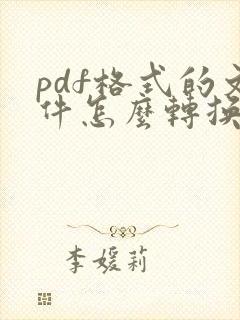 pdf格式的文
件怎麼轉換
李媛莉